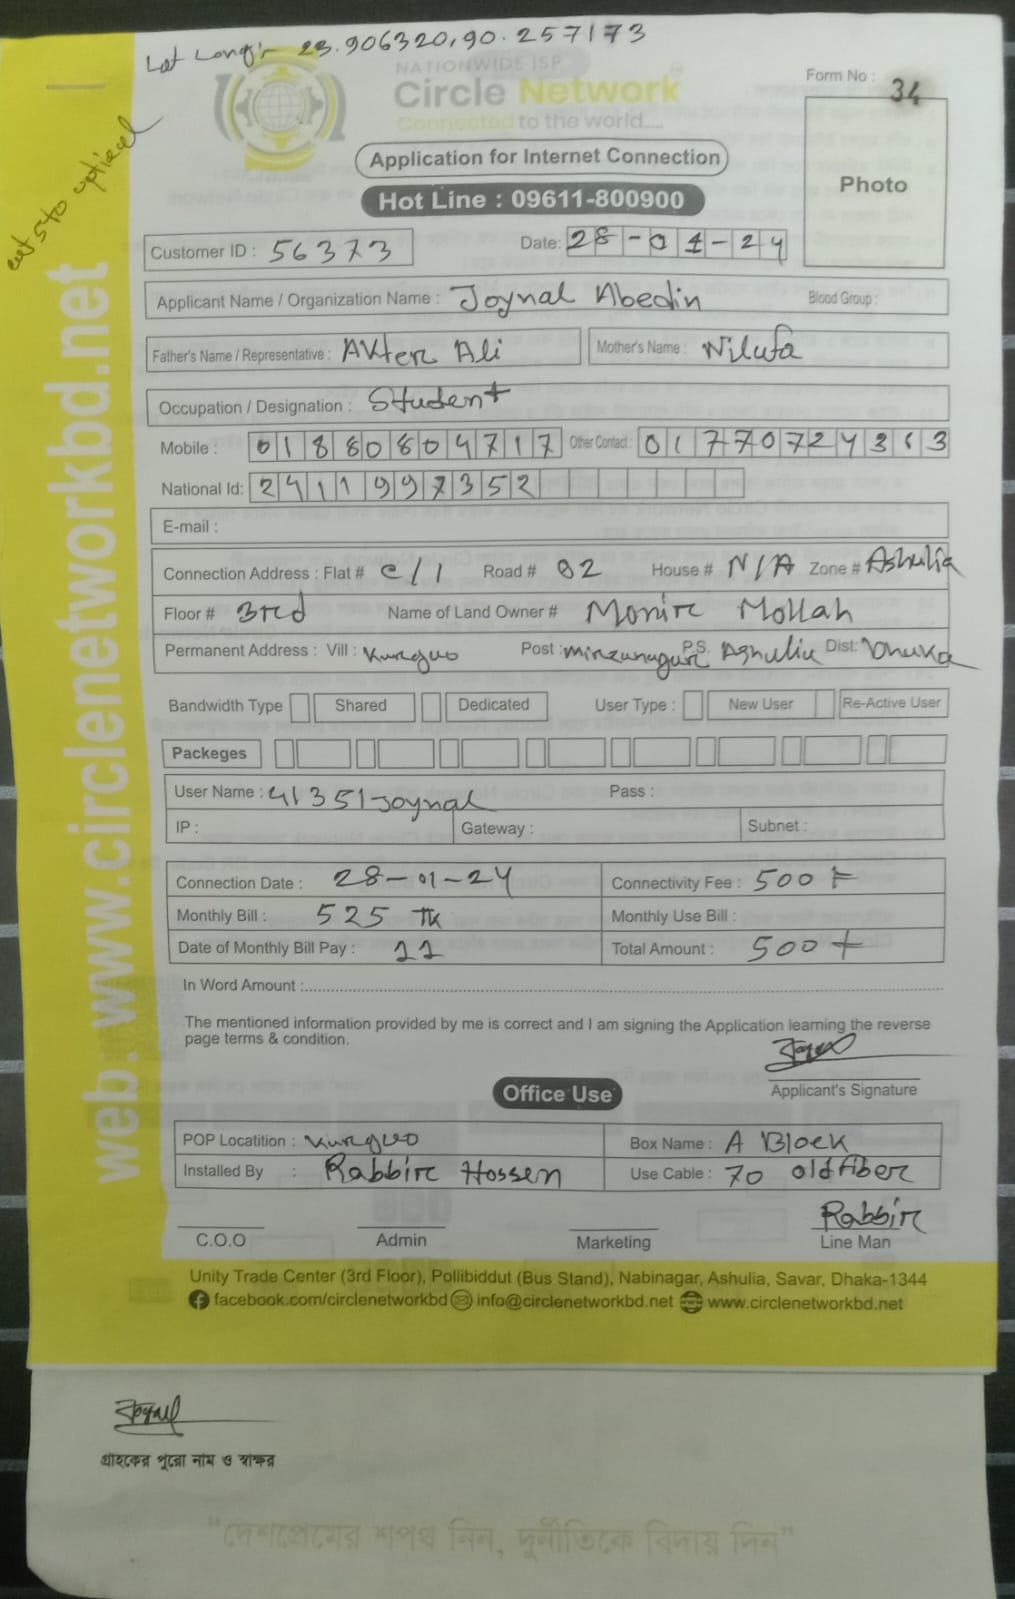 Lat Long:- 23.906320,90.257173
NATIONWIDE ISP
Circle Network
Connected to the world.....
Form No : 34
Application for Internet Connection
Photo
Hot Line : 09611-800900
Customer ID : 56373
Date: 28-01-24
Applicant Name / Organization Name : Joynal Abedin Blood Group :
Father's Name / Representative : Akter Ali Mother's Name : Nilufa
Occupation / Designation : Student
Mobile : 01880804717 Other Contact : 01770724363
National Id: 2411997352
E-mail :
Connection Address : Flat # C/1 Road # 02 House # N/A Zone # Ashulia
Floor # 3rd Name of Land Owner # Monir Mollah
Permanent Address : Vill : Post : P.S. Ashulia Dist: Dhaka
Bandwidth Type Shared Dedicated User Type : New User Re-Active User
Packeges
User Name : 41351Joynal Pass :
IP : Gateway : Subnet :
Connection Date : 28-01-24 Connectivity Fee : 500
Monthly Bill : 525 TK Monthly Use Bill :
Date of Monthly Bill Pay : 11 Total Amount : 500
In Word Amount :
The mentioned information provided by me is correct and I am signing the Application learning the reverse
page terms & condition.
Applicant's Signature
Office Use
POP Locatition : Box Name : A Block
Installed By : Rabbir Hossen Use Cable : 70 old fiber
Rabbir
C.O.O Admin Marketing Line Man
Unity Trade Center (3rd Floor), Pollibiddut (Bus Stand), Nabinagar, Ashulia, Savar, Dhaka-1344
facebook.com/circlenetworkbd info@circlenetworkbd.net www.circlenetworkbd.net
web: www.circlenetworkbd.net
গ্রাহকের পুরো নাম ও স্বাক্ষর
"দেশপ্রেমের শপথ নিন, দুর্নীতিকে বিদায় দিন"